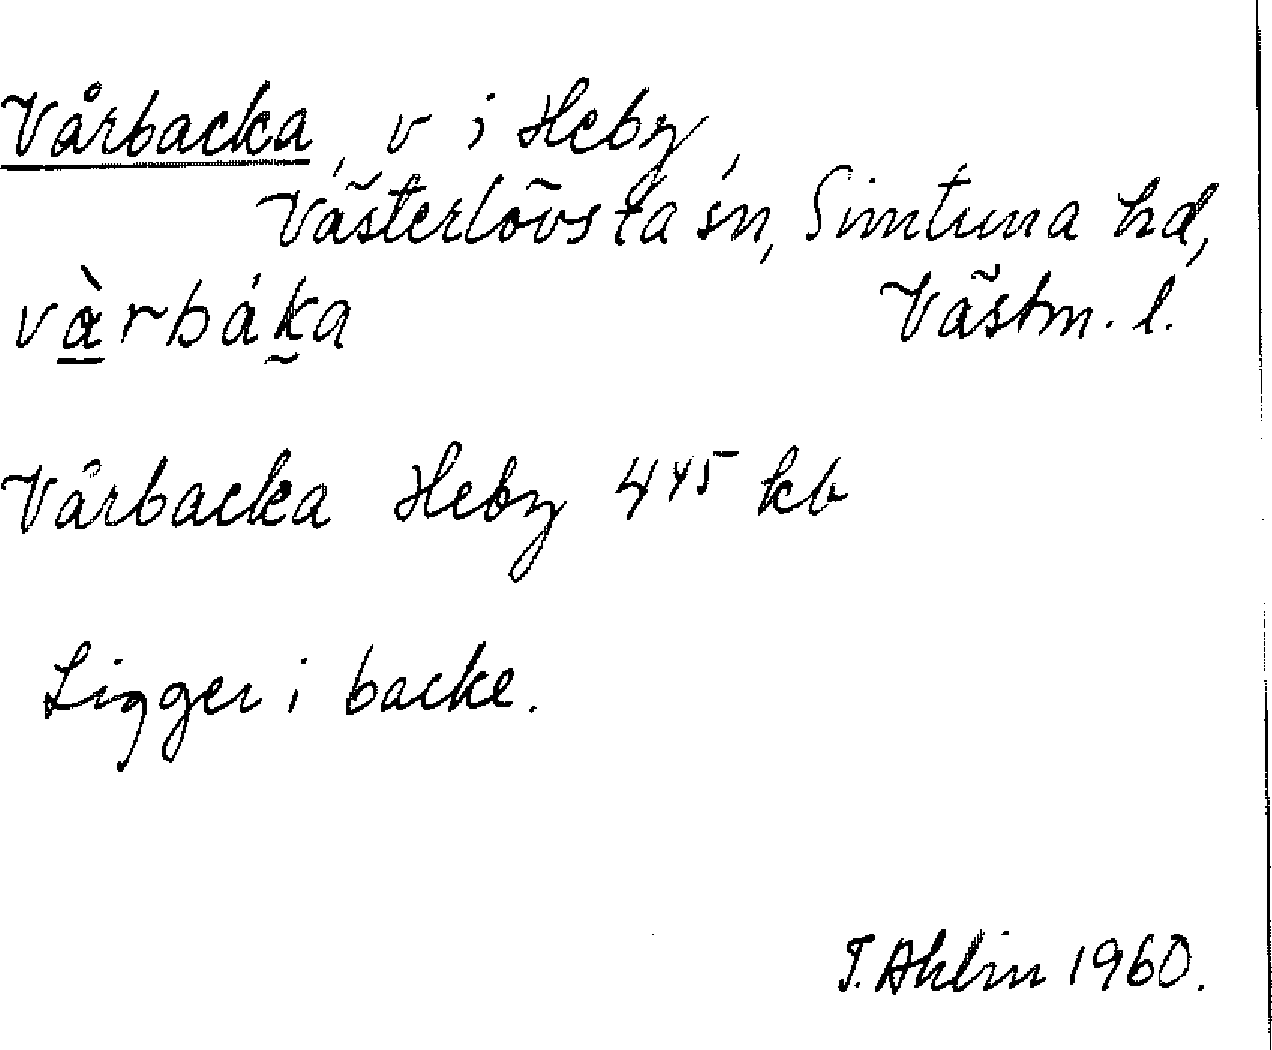 Vårbacka, v i Heby,
Västerlövsta sn, Simtuna hd,
Västm. l.
vàrbáka
Vårbacka Heby 4⁴⁵ kb
Ligger i backe.
T. Ahlin 1960.